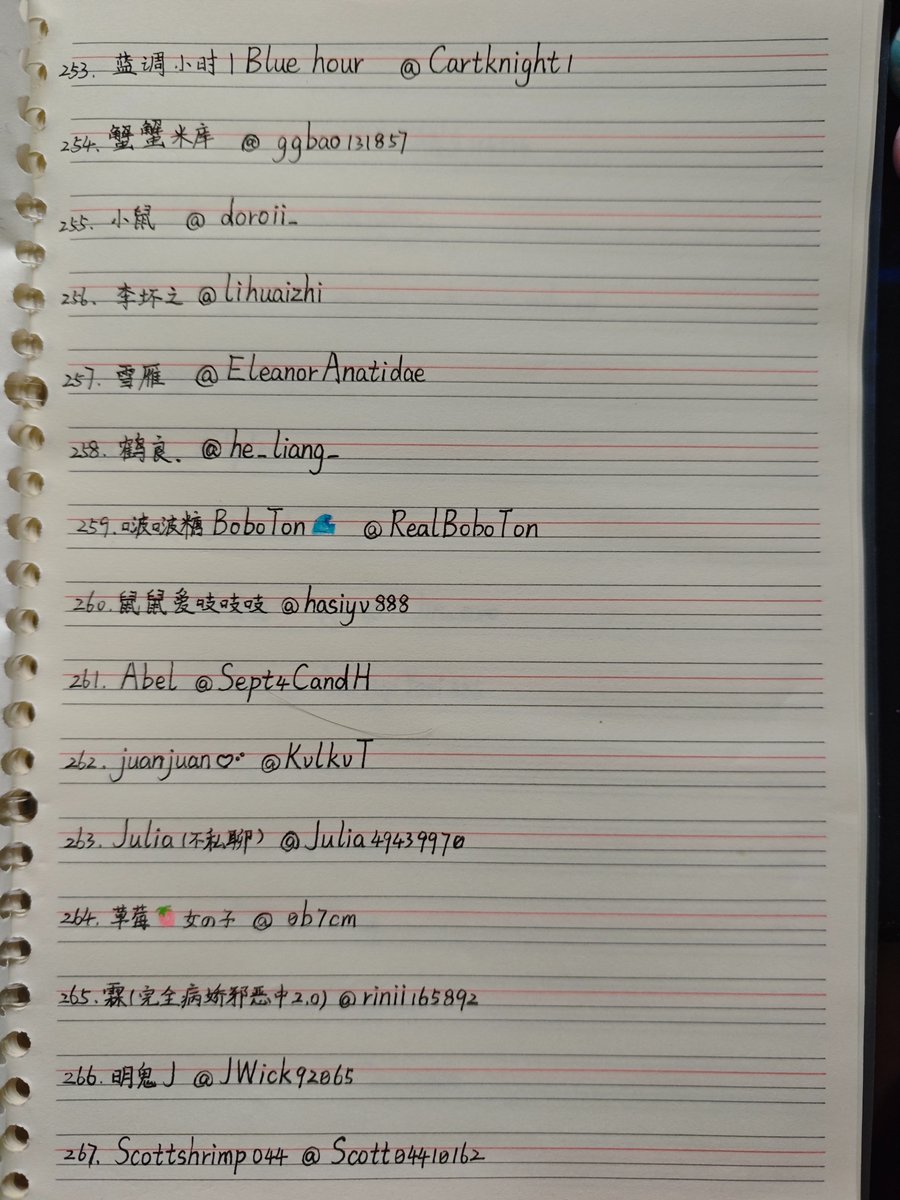 253. 蓝调小时 | Blue hour @Cartknight1
254. 蟹蟹米库 @ggbao131857
255. 小鼠 @doroii_
256. 李坏之 @lihuaizhi
257. 雪雁 @EleanorAnatidae
258. 鹤良、 @he_liang_
259. 啵啵糖BoboTon🌊 @RealBoboTon
260. 鼠鼠爱吱吱吱 @hasiyv888
261. Abel @Sept4CandH
262. juanjuan♡•° @KvlkvT
263. Julia (不私聊) @Julia49439970
264. 草莓🍓女の子 @0b7cm
265. 霖(完全病娇邪恶中2.0) @rinii165892
266. 明鬼J @JWick92065
267. Scottshrimp044 @Scott04410162